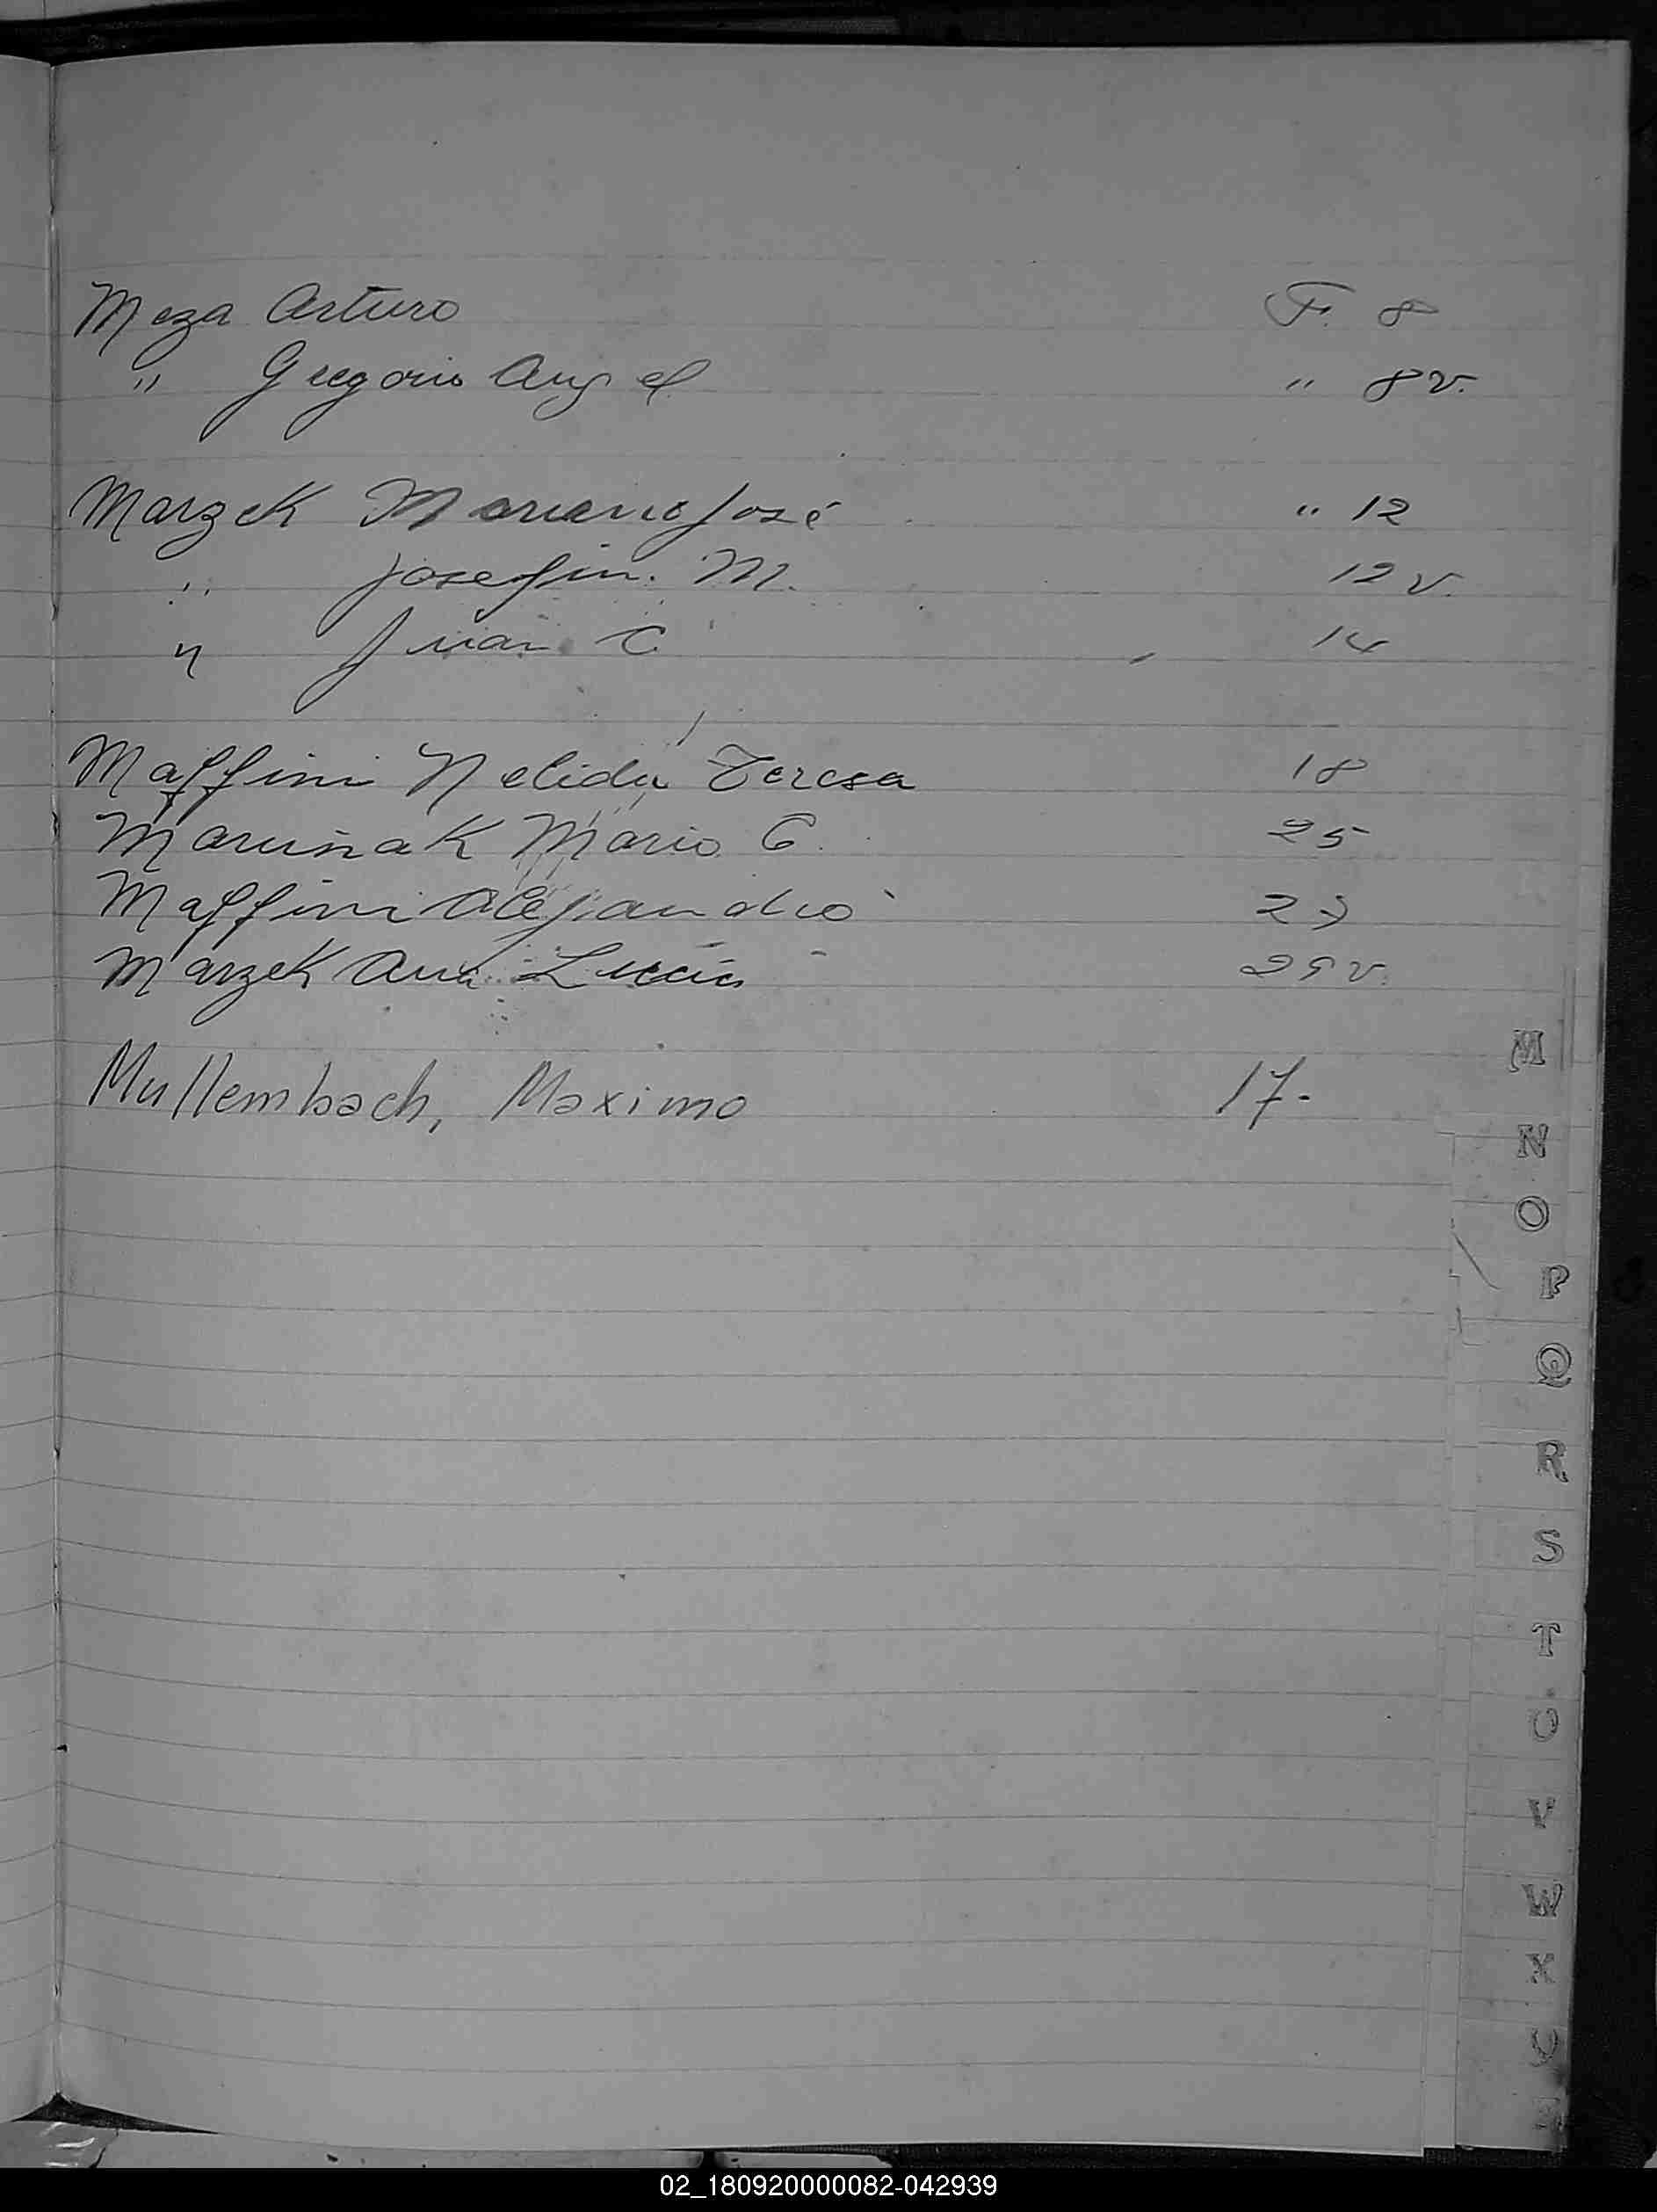 Meza Arturo F. 8
" Gregorio Angel " 8 v.
Marzek Mariano José " 12
" Josefin. M. 12 v.
" Juan C. 14
Maffini Nelida Teresa 18
Marusñak Mario C. 25
Maffini Alejandro
Marzek Ana Lucia 29 v.
Mullembach, Maximo 17.-
M
N
O
P
Q
R
S
T
U
V
W
X
Y
02_180920000082-042939